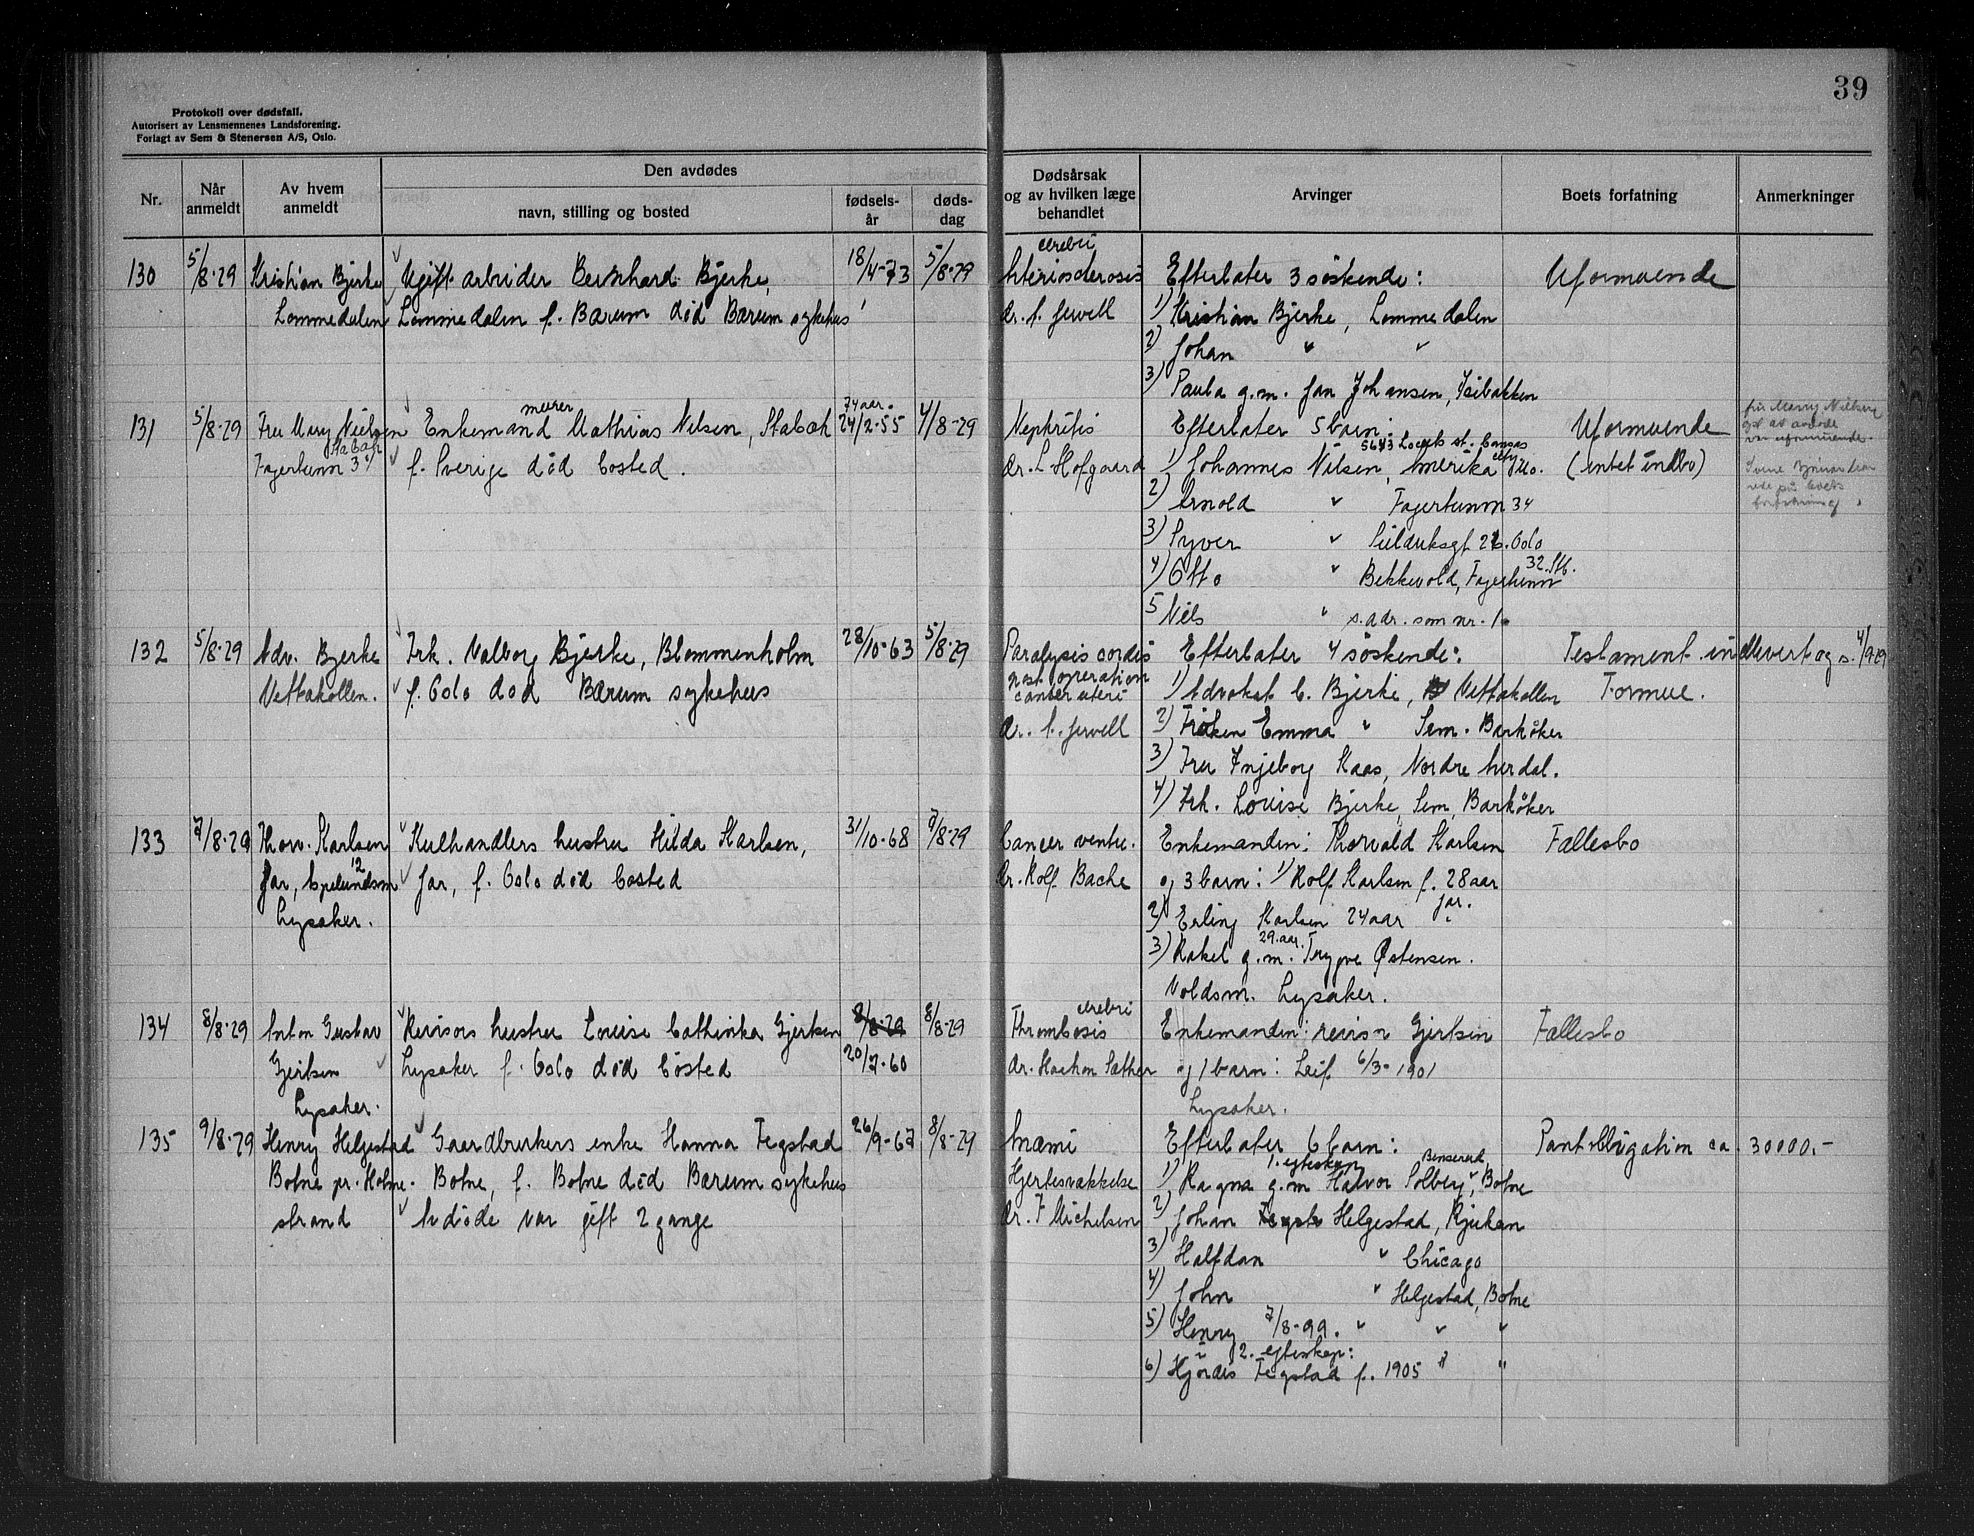 39
Protokoll over dødsfall.
Autorisert av Lensmennenes Landsforening.
Forlagt av Sem & Stenersen A/S, Oslo.
Nr.
Når anmeldt
Av hvem anmeldt
Den avdødes
navn, stilling og bosted
fødsels-år
døds-dag
Dødsårsak og av hvilken læge behandlet
Arvinger
Boets forfatning
Anmerkninger
130
5/8-29
Kristian Bjerke
Lommedalen
Ugift arbeider Bernhard Bjerke,
Lommedalen f. Bærum død Bærum sykehus
18/4-73
5/8-29
cerebri
Arteriosclerosis
dr. A. Jervell
Efterlater 3 søskende:
1) Kristian Bjerke, Lommedalen
2) Johan " "
3) Paula g.m. Jan Johansen, Isibakken
Uformuende
131
5/8-29
Fru Mary Nielsen
Stabæk
Fagertunvn 3
murer
Enkemand Mathias Nilsen, Stabæk
f. Sverige død bosted.
74 aar.
24/2-55
4/8-29
Nephritis
dr. L Hofgaard
Efterlater 5 barn:
5643 Locust st. Cansas
1) Johannes Nilsen, Amerika city Mo.
2) Arnold " Fagertunvn 34
3) Syver " Seilduksgt Oslo
32. Stb.
4) Otto " Bekkevold, Fagertunvn
5 Nils " s. adr. som nr. 1.
Uformuende
(intet indbo)
fru Marry Nielsen
at avdøde
var uformuende.
132
5/8-29
Adv. Bjerke
Vettakollen.
Frk. Valborg Bjerke, Blommenholm
f. Oslo død Bærum sykehus
28/10-63
5/8-29
Paralysis cordis
post operation
cancer uteri
dr. A. Jervell
Efterlater 4 søskende:
1) Advokat C. Bjerke, Vettakollen
2) Frøken Emma " Sem. Barkåker
3) Fru Ingeborg Kaas, Nordre Aurdal.
4) Frk. Louise Bjerke, Sem, Barkåker
Testament indlevert og s. 4/9-29
Formue.
133
7/8-29
Thorv. Karlsen
12
Jar, Espelundsvn
Lysaker.
Kulhandlers hustru Hilda Karlsen,
Jar, f. Oslo død bosted
31/10-68
7/8-29
Cancer ventr.
dr. Rolf Bache
Enkemanden: Thorvald Karlsen
og 3 barn: 1) Rolf Karlsen f. 28 aar
Jar.
2) Erling Karlsen 24 aar "
29. aar.
3) Rakel g.m. Trygve Østensen.
Voldsvn. Lysaker.
Fællesbo
134
8/8-29
Anton Gustav
Gjertsen
Lysaker.
Revisors hustru Louise Cathinka Gjertsen
Lysaker f. Oslo død bosted
8/8-29
20/7-60
8/8-29
cerebri
Thrombosis
dr. Haakon Sæther
Enkemanden: revisor Gjertsen
og 1 barn: Leif 6/3-1901
Lysaker.
Fællesbo
135
9/8-29
Henry Helgestad
Botne pr. Holme-
strand
Gaardbrukers enke Hanna Fegstad
Botne, f. Botne død Bærum sykehus
Avdøde var gift 2 gange
26/9-67
8/8-29
Anæmi
Hjertesvækkelse
dr. F Michelsen
Efterlater 6 barn:
1. egteskap
1) Ragna g.m Halvor Solberg, Botne
2) Johan Helgestad, Rjukan
3) Halfdan " Chicago
4) John " Helgestad, Botne
5) Henry 7/8-99. " " "
i 2. egteskap:
6) Hjørdis Fegstad f. 1905 " "
Pantobligation ca. 30000.-